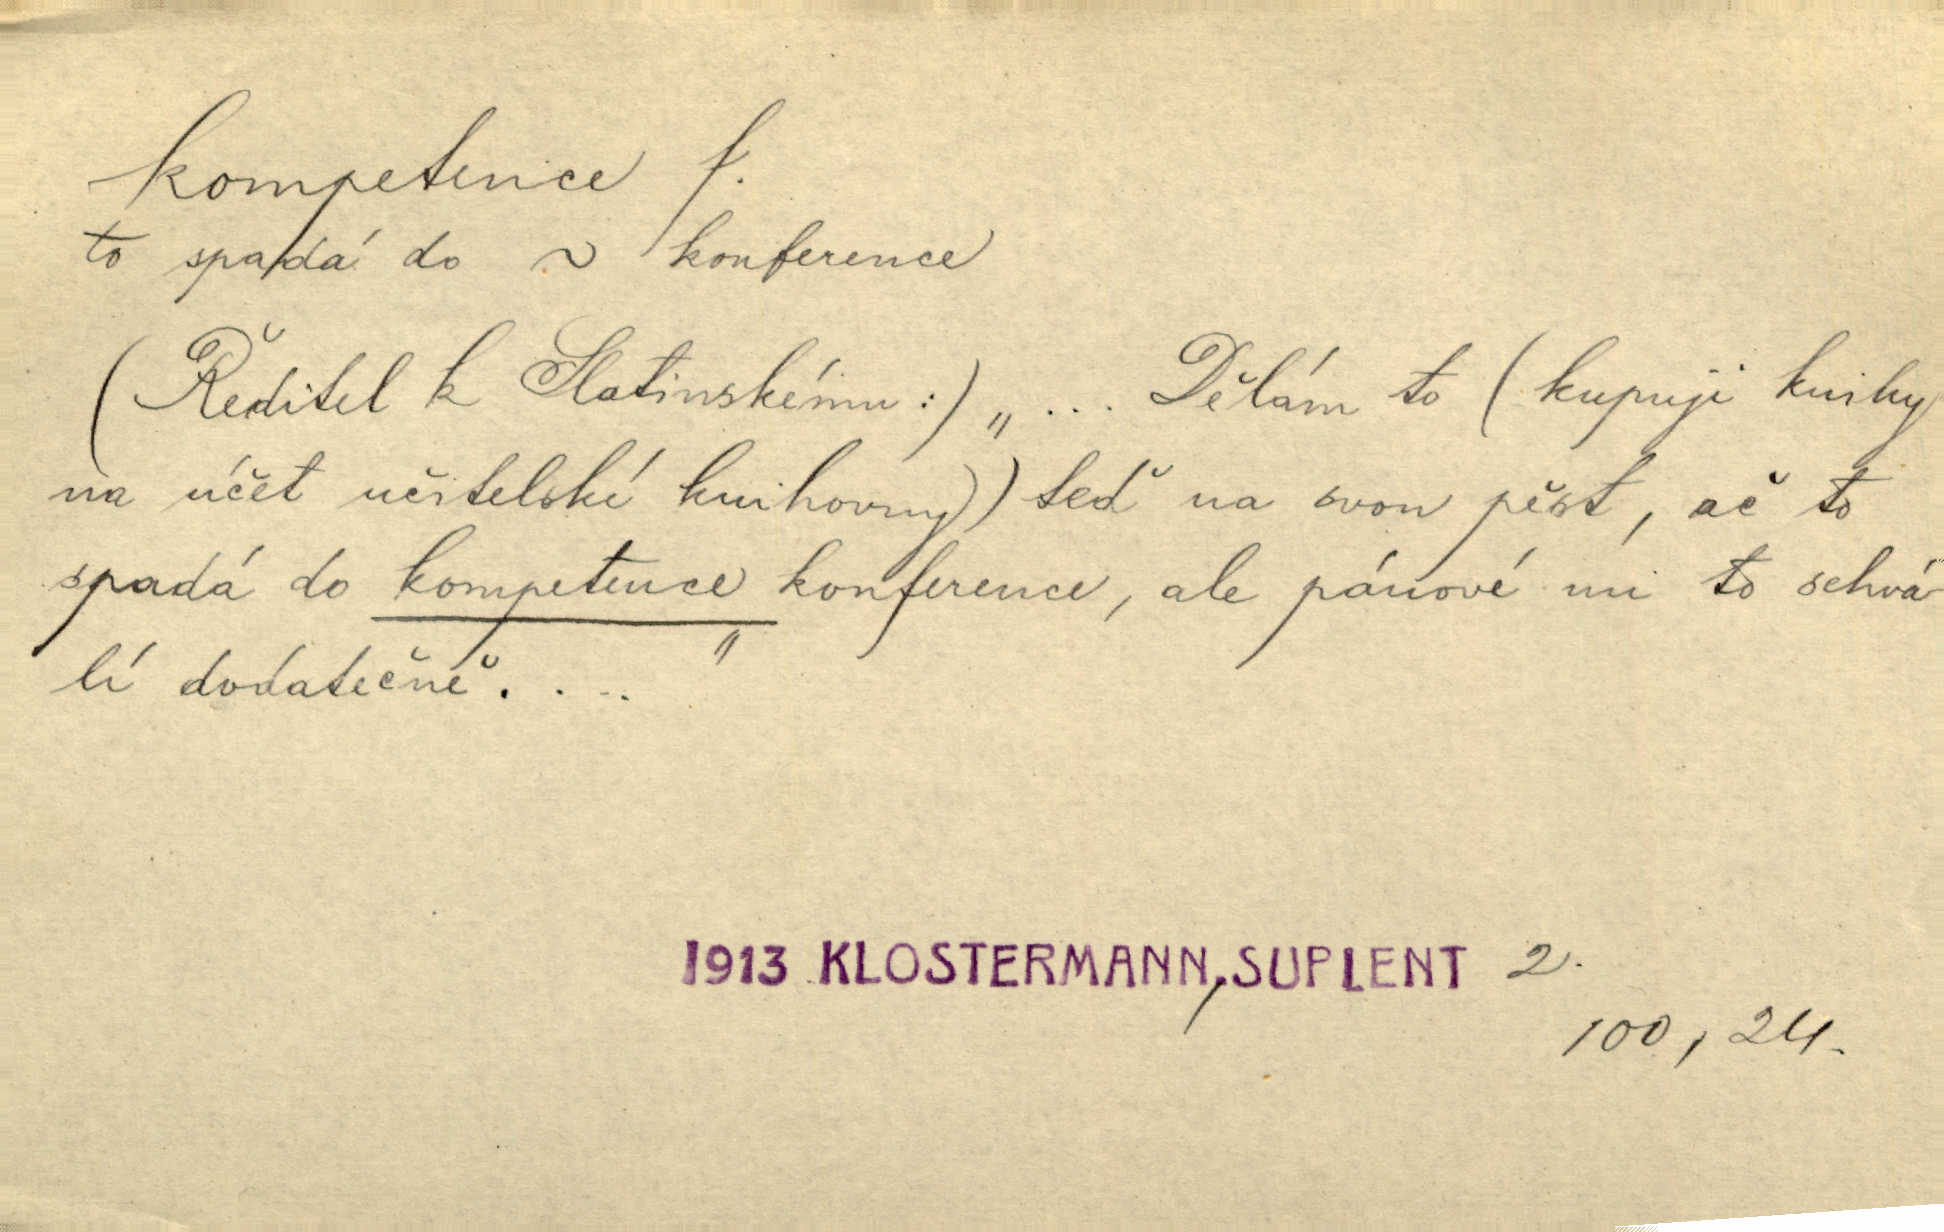 kompetence f.
to spadá do ~ konference
(Ředitel k Slatinskému:) „... Dělám to (kupuji knihy
na účet učitelské knihovny)) teď na svou pěst, ač to
spadá do kompetence konference, ale pánové mi to schvá-
lí dodatečně. . . ."
1913 KLOSTERMANN, SUPLENT 2.
100, 24.